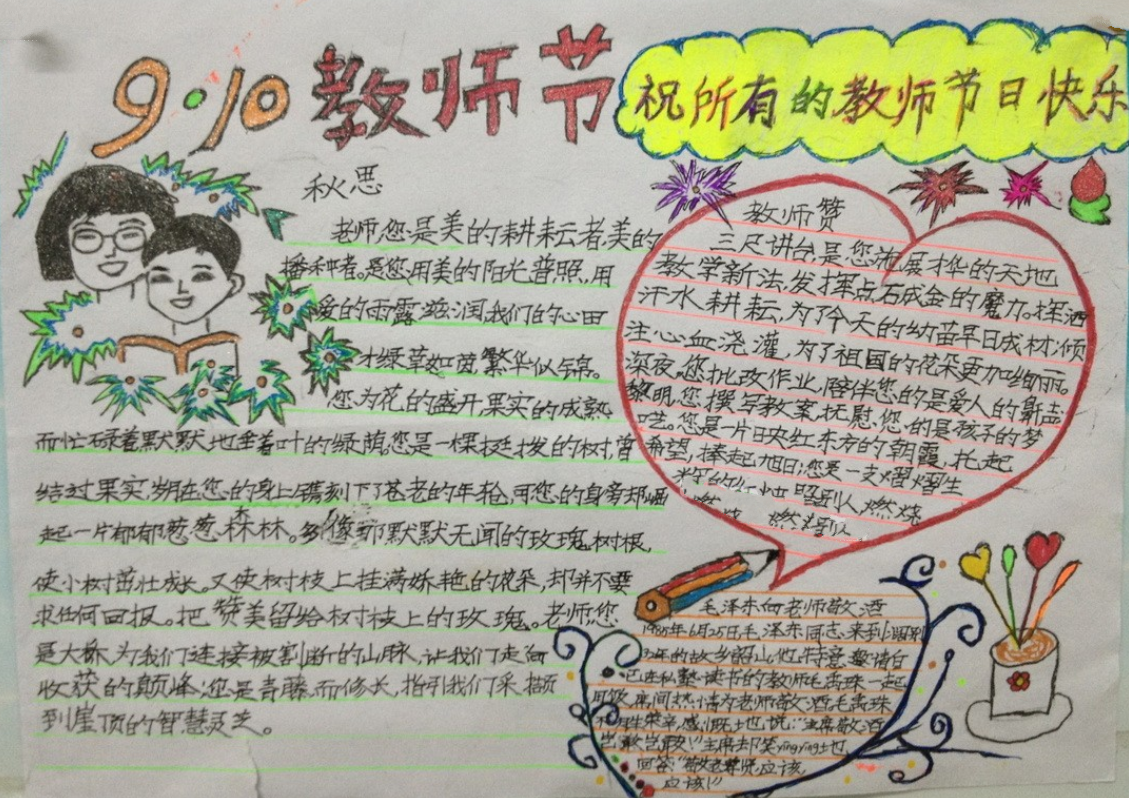 9·10 教师节
祝所有的教师节日快乐
秋思
老师,您是美的耕耘者,美的
播种者。是您用美的阳光普照,用
爱的雨露滋润,我们的心田
才绿草如茵,繁华似锦。
您为花的盛开,果实的成熟
而忙碌着,默默地垂着叶的绿荫。您是一棵挺拔的树,曾
结过果实,岁月在您的身上镌刻下了苍老的年轮,而您的身旁却崛
起一片郁郁葱葱森林。多像那默默无闻的玫瑰树根,
使小树茁壮成长。又使树枝上挂满娇艳的花朵,却并不要
求任何回报。把赞美留给树枝上的玫瑰。老师,您
是大桥,为我们连接被割断的山脉,让我们走向
收获的颠峰;您是青藤而修长,指引我们采撷
到崖顶的智慧灵芝。
教师赞
三尺讲台,是您施展才华的天地
教学新法,发挥点石成金的魔力。挥洒
汗水,耕耘,为了今天的幼苗早日成材;倾
注心血浇灌,为了祖国的花朵更加绚丽。
深夜,您批改作业,陪伴您的是爱人的鼾声
黎明,您撰写教案,抚慰您的是孩子的梦
呓。您是一片映红东方的朝霞,托起
希望,捧起旭日;您是一支熠熠生
辉的红烛
燃烧
毛泽东向老师敬酒
年6月25日毛泽东同志来到阔别
32年的故乡韶山,他特意邀请自
己进私塾读书的教师毛禹珠一起
用餐,席间热情为老师敬酒,毛禹珠
荣幸,感慨地说:“主席敬酒
岂敢岂敢!”主席却笑yingying地
回答:“敬老尊贤,应该,
应该!”